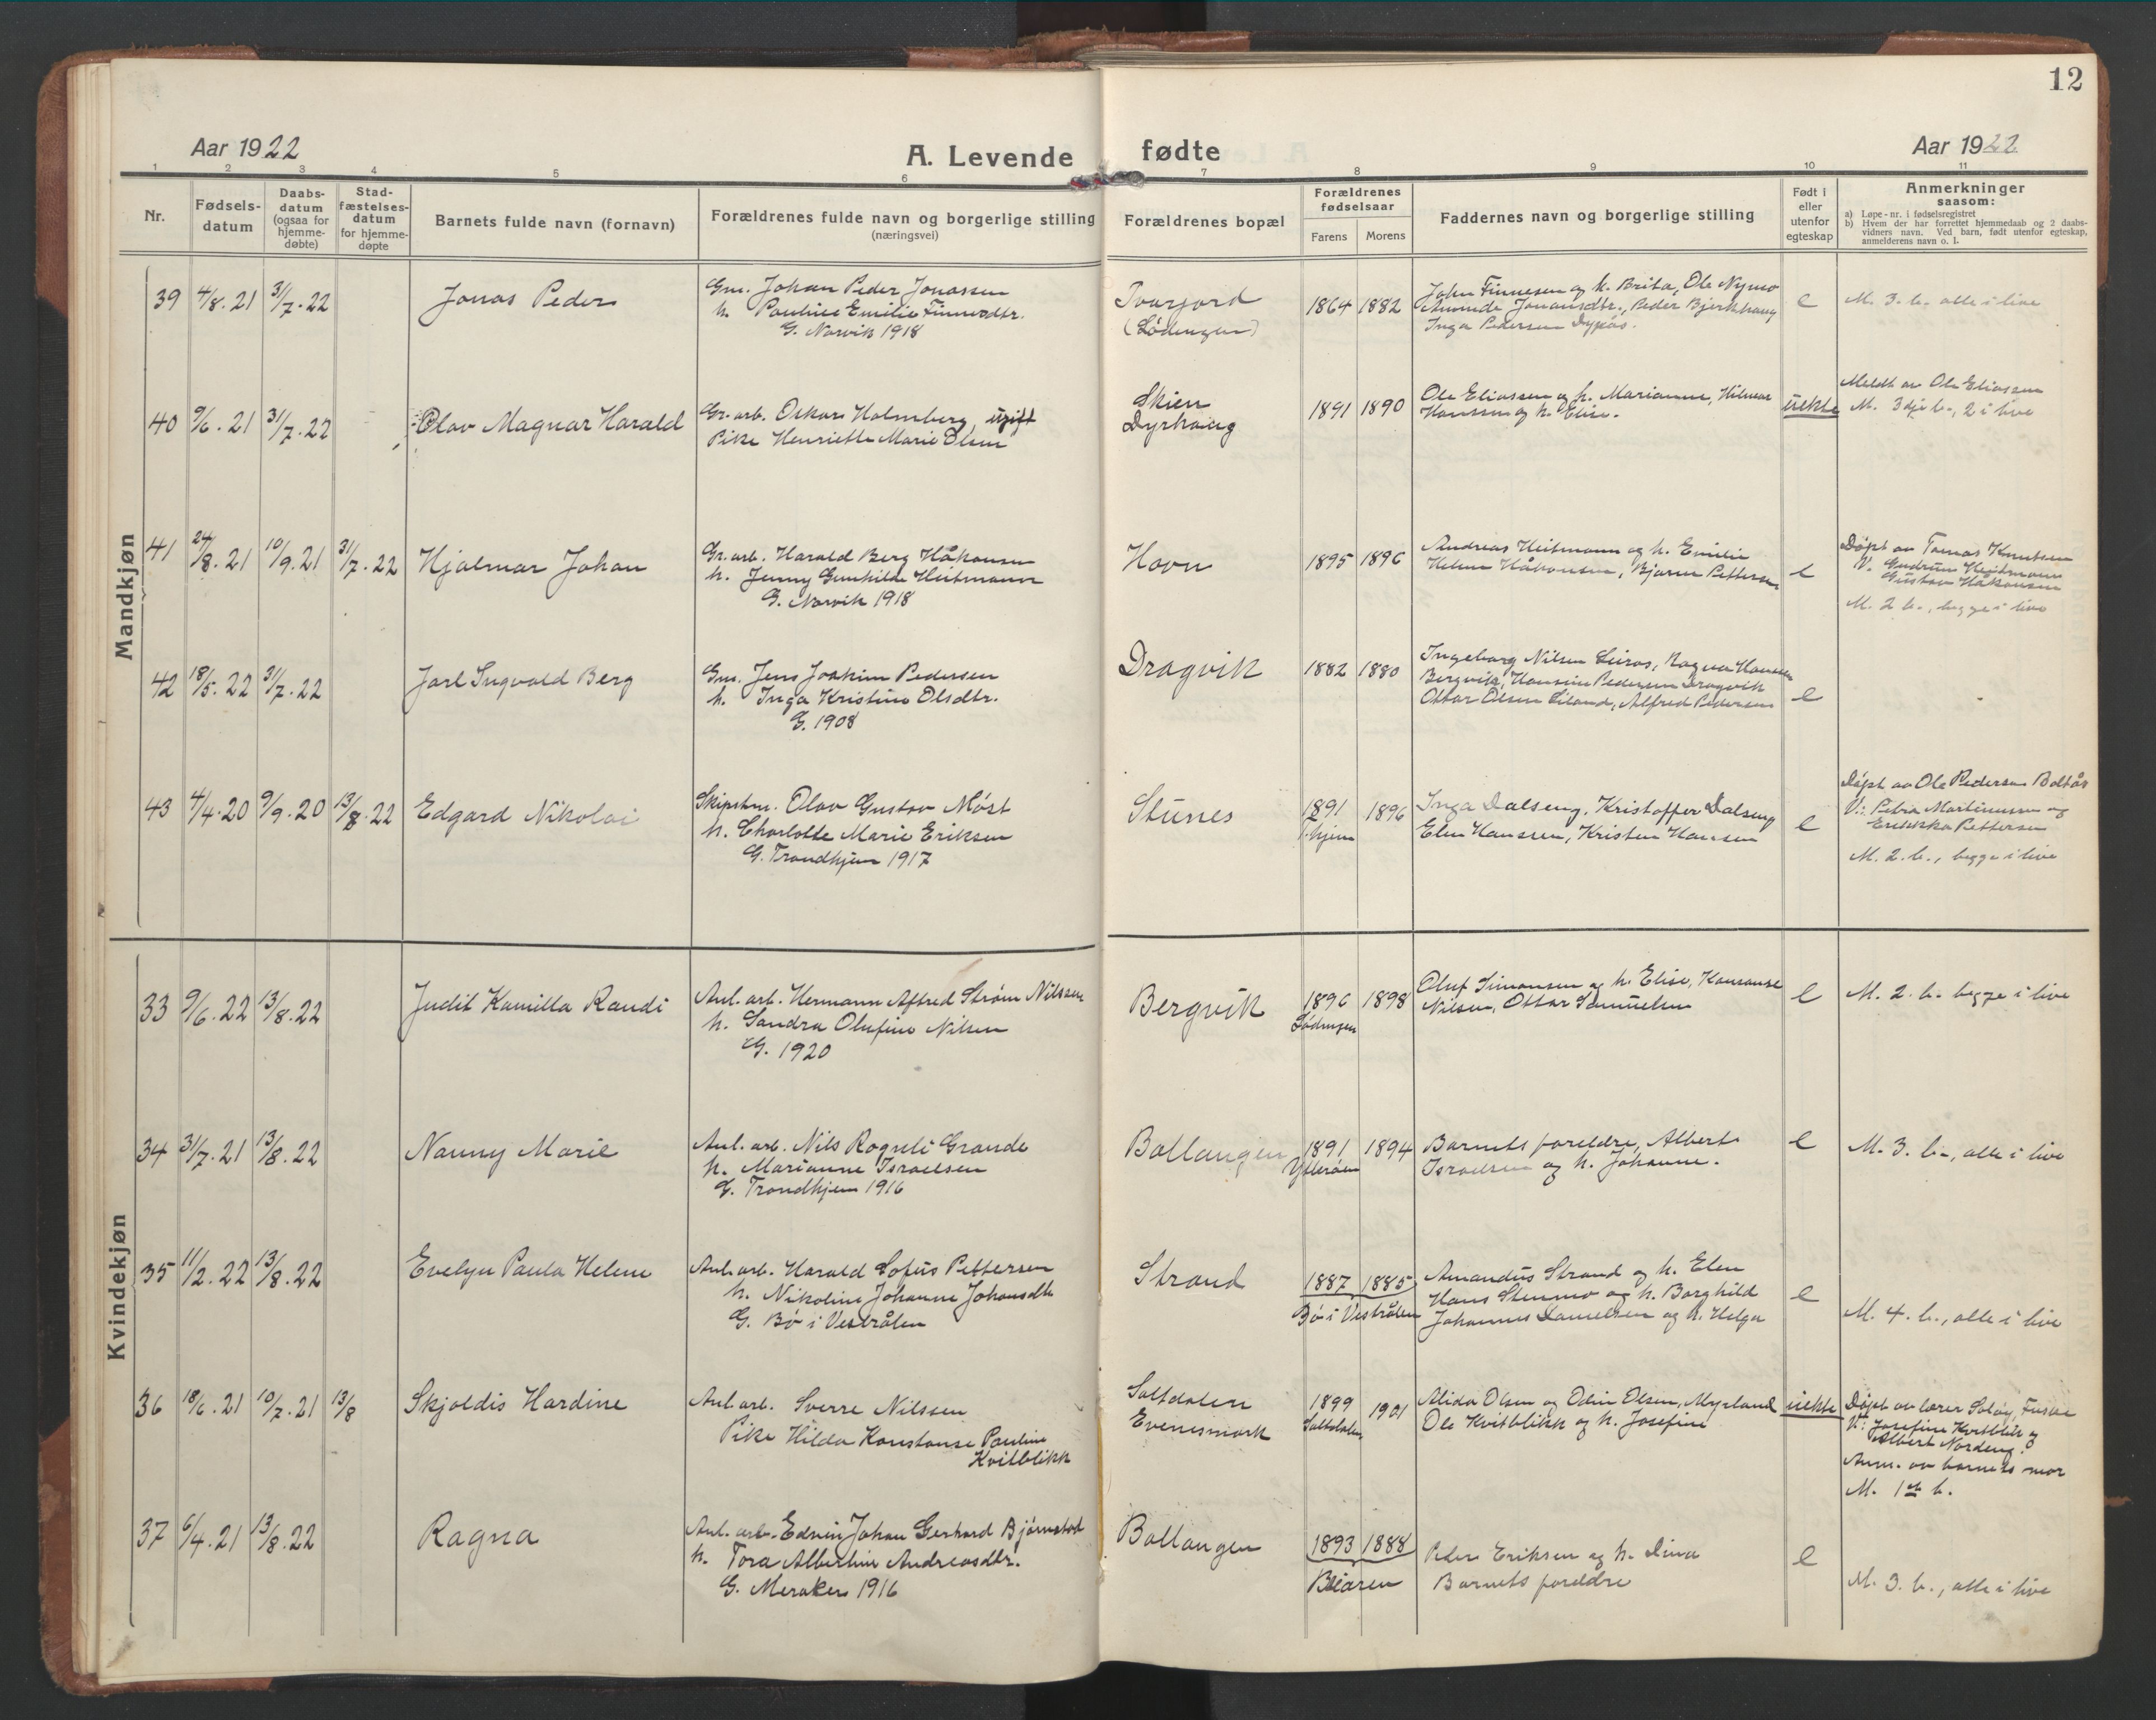 12
Aar 1922
A. Levende fødte
Aar 1922
1 2 3 4 5 6 7 8 9 10 11
Nr.
Fødsels-
datum
Daabs-
datum
(ogsaa for
hjemme-
døbte)
Stad-
fæstelses-
datum
for hjemme-
døpte
Barnets fulde navn (fornavn)
Forældrenes fulde navn og borgerlige stilling
(næringsvei)
Forældrenes bopæl
Forældrenes
fødselsaar
Farens Morens
Faddernes navn og borgerlige stilling
Født i
eller
utenfor
egteskap
Anmerkninger
saasom:
a) Løpe-nr. i fødselsregistret
b) Hvem der har forrettet hjemmedaab og 2 daabs-
vidners navn. Ved barn, født utenfor egteskap,
anmelderens navn o. l.
Mandkjøn
39 4/8. 21 31/7. 22
Jonas Peder
Gm. Johan Peder Jonassen
h. Pauline Emilie Finnesdtr.
G. Narvik 1918
Tvarfjord
(Lødingen)
1864 1882
John Finnesen og h. Brita, Ole Nymo
Jonansdtr., Peder Bjerkhaug
Inga Pedersen Dypås.
e
M. 3. b. alle i live
40 9/6. 21 31/7. 22
Olav Magnar Harald
Gr. arb. Oskar Holmberg, ugift
Pike Henriette Marie Olsen
Skien
Dyrhaug
1891 1890
Ole Eliassen og h. Marianne, Hilmar
Hanssen og h. Elise.
uekte
Meldt av Ole Eliassen
M. 3dje b., 2 i live
41 24/8. 21 10/9. 21 31/7. 22
Hjalmar Johan
Gr. arb. Harald Berg Håkonsen
h. Jenny Gunhilda Heitmann
G. Narvik 1918
Havn
1895 1896
Andreas Heitmann og h. Emilie
Helene Håkonsen, Bjarne Pettersen
e
Døpt av Tomas Knutsen
V. Gudrun Heitmann
Gustav Håkonsen
M. 2 b., begge i live
42 18/5. 22 31/7. 22
Jarl Ingvald Berg
Gm. Jens Joakim Pedersen
h. Inga Kristine Olsdtr.
G. 1908
Dragvik
1882 1880
Ingeborg Nilsen Leiros, Ragna Hansen
Bergvik, Hansine Pedersen Dragvik
Ottar Olsen Liland, Alfred Pedersen
e
43 4/4. 20 9/9. 20 13/8. 22
Edgard Nikolai
Skipstm. Olav Gustav Møst
h. Charlotte Marie Eriksen
G. Trondhjem 1917
Stunes
1891 1896
T.hjem
Inga Dalseng, Kristoffer Dalseng
Elen Hanssen, Kristen Hansen
e
Døpt av Ole Pedersen Boltås
V: Petra Martinussen og
Erikka Pettersen
M. 2. b., begge i live
Kvindekjøn
33 9/6. 22 13/8. 22
Judit Kamilla Randi
Anl. arb. Hermann Alfred Strøm Nilssen
h. Sandra Olufine Nilsen
G. 1920
Bergvik
1896 1898
Lødingen
Oluf Simonsen og h. Elise, Konstanse
Nilsen, Ottar Samuelsen
e
M. 2. b. begge i live
34 31/7. 21 13/8. 22
Nanny Marie
Anl. arb. Nils Ragnli Grande
h. Marianne Israelsen
G. Trondhjem 1916
Ballangen
1891 1894
Ytterøen
Barnets foreldre, Albert
Israelsen og h. Johanne.
e
M. 3. b., alle i live
35 11/2. 22 13/8. 22
Evelyn Paula Helene
Anl. arb. Harald Sofus Pettersen
h. Nikoline Johanne Johansdtr
G. Bø i Vestrålen
Strand
1887 1885
Bø i Vestrålen
Amandus Strand og h. Elen
Hans Stenmo og h. Borghild
Johannes Danielsen og h. Helga
e
M. 4. b., alle i live
36 18/6. 21 10/7. 21 13/8
Skjoldis Hardine
Anl. arb. Sverre Nilssen
Pike Hilda Konstanse Pauline
Kvitblikk
Saltdalen
Evenesmark
1899 1901
Saltdalen
Alida Olsen og Odin Olsen, Myrland
Ole Kvitblikk og h. Josefine
uekte
Døpt av lærer Soløy, Fuske
V: Josefine Kvitblik og
Albert Nordeng.
Anm. av barnets mor
M. 1ste b.
37 6/4. 21 13/8. 22
Ragna
Anl. arb. Edvin Johan Gerhard Bjørnstad
h. Tora Albertine Andreasdtr.
G. Meraker 1916
Ballangen
1893 1888
Beiaren
Peder Eriksen og h. Dina
Barnets foreldre
e
M. 3. b., alle i live